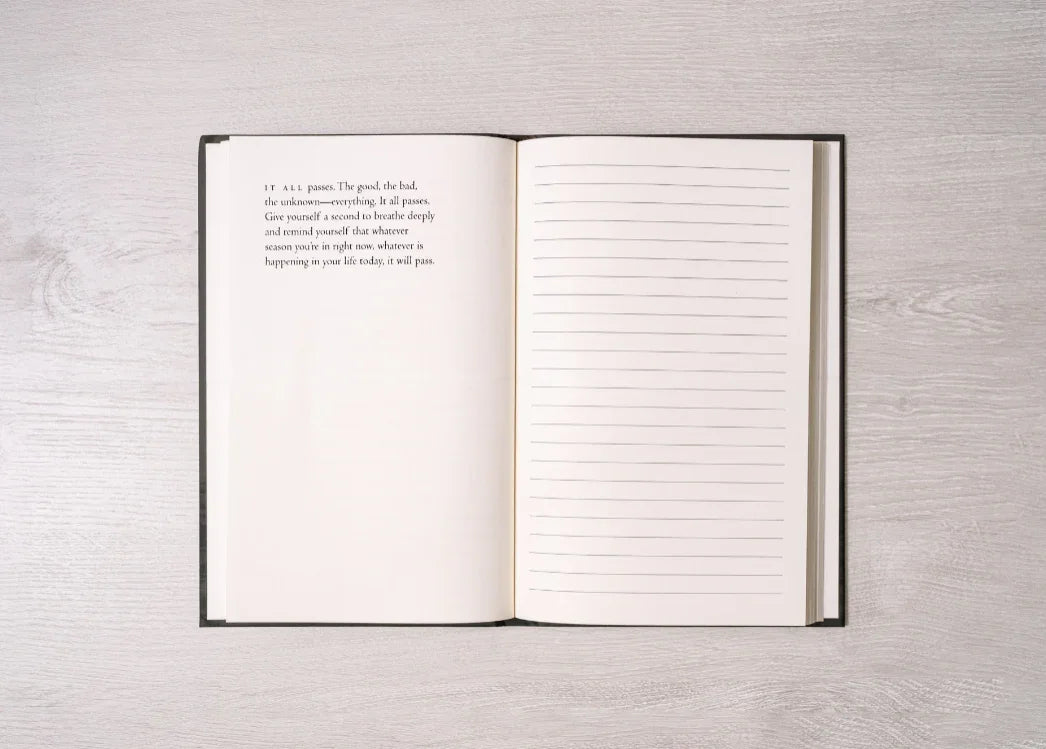 IT ALL passes. The good, the bad,
the unknown—everything. It all passes.
Give yourself a second to breathe deeply
and remind yourself that whatever
season you're in right now, whatever is
happening in your life today, it will pass.